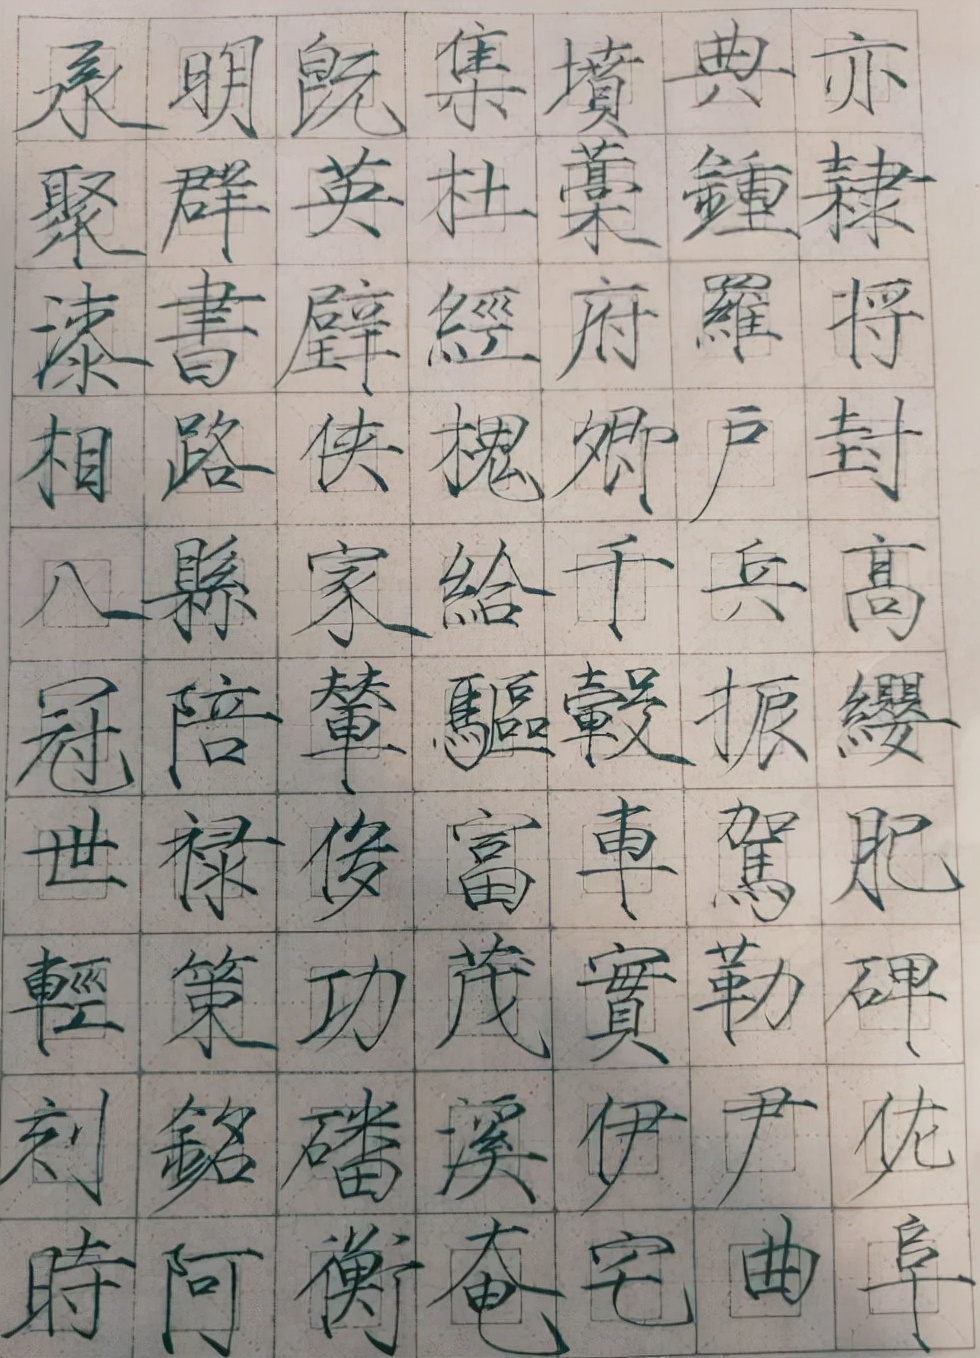 承明既集墳典亦
聚群英杜藁鍾隸
漆書壁經府羅将
相路俠槐卿户封
八縣家給千兵髙
冠陪輦驅轂振纓
世禄侈富車駕肥
輕策功茂實勒碑
刻銘磻溪伊尹佐
時阿衡奄宅曲阜